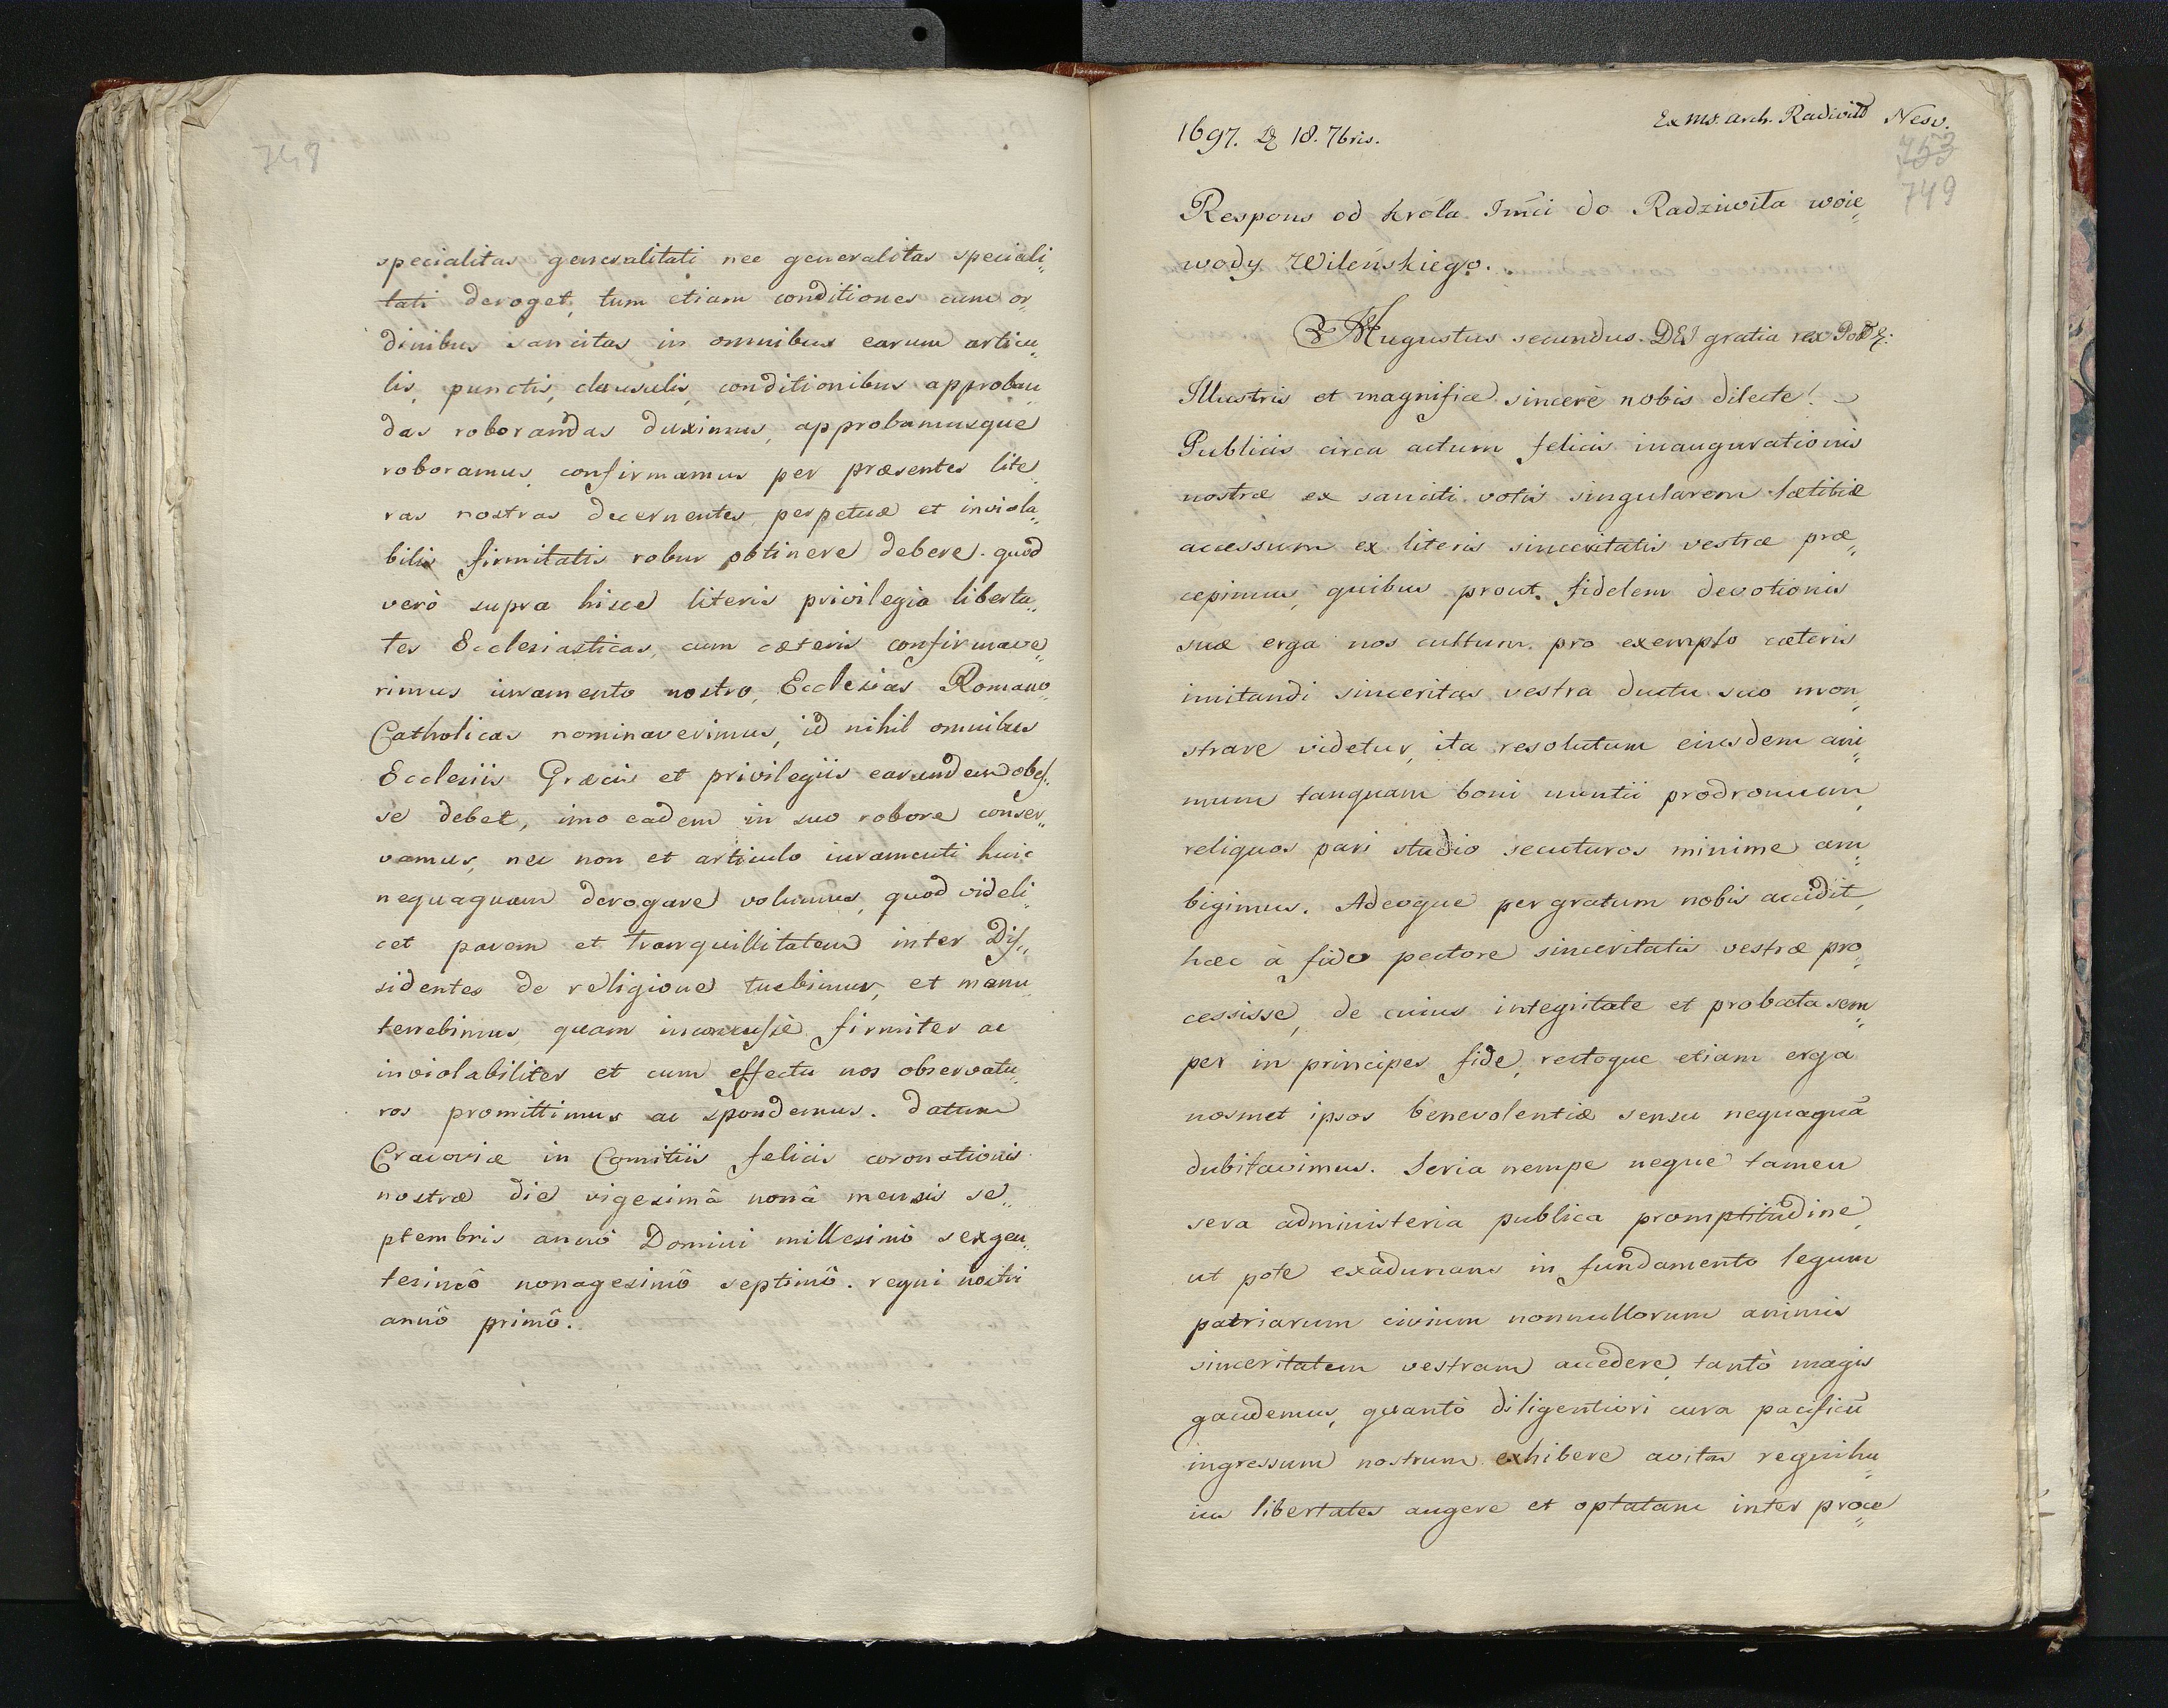 748
specialitas generalitati nec generalitas speciali„
tati deroget, tum etiam conditiones cum or„
dinibus sancitas in omnibus earum articu„
lis, punctis, clausulis, conditionibus approban„
das roborandas duximus, approbamusque
roboramus, confirmamus per præsentes lite„
ras nostras decernentes, perpetuæ et inviola„
bilis firmitatis robur obtinere debere. quod
verò supra hisce literis privilegia liberta„
tes Ecclesiasticas, cum cæteris confirmave„
rimus iuramento nostro, Ecclesias Romano
Catholicas nominaverimus, id nihil omnibus
Ecclesiis Græcis et privilegiis earundem obes„
se debet, imo eadem in suo robore conser„
vamus, nec non et articulo iuramenti huic
nequaquam derogare volumus, quod videli„
cet pacem et tranquillitatem inter Dis„
sidentes de religione tuebimur, et manu
tenebimus, quam inconcusse firmiter ac
inviolabiliter et cum effectu nos observatu„
ros promittimus ac spondemus. datum
Cracoviæ in Comitiis felicis coronationis
nostræ die vigesimâ nonâ mensis se„
ptembris annô Domini millesimô sexgen„
tesimô nonagesimô septimô. regni nostri
annô primô.
Ex ms. arch. Radivill Nesv.
1697. D 18. 7bris.
753
749
Respons od króla Jmći do Radziwiła woie„
wody Wileńskiego.
Augustus secundus. DEI gratia rex Pol
Illustris et magnifice sincerè nobis dilecte!
Publicis circa actum felicis inaugurationis
nostræ ex sanciti votis singularem lætitiæ
accessum ex literis sinceritatis vestræ præ„
cepimus, quibus prout fidelem devotionis
suæ erga nos cultum pro exemplo cæteris
imitandi sinceritas vestra ductu suo mon„
strare videtur, ita resolutum eiusdem ani„
mum tanquam boni nuntii prodromum,
reliquos pari studio secuturos minime am„
bigimus. Adeoque pergratum nobis accidit,
hæc à fido pectore sinceritatis vestræ pro„
cessisse, de cuius integritate et probata sem„
per in principes fide, rectoque etiam erga
nosmet ipsos benevolentiæ sensu nequaquā
dubitavimus. Seria nempe neque tamen
sera administeria publica promptitudine,
ut pote exādunans in fundamento legum
patriarum civium nonnullorum animis
sinceritatem vestram accedere, tantò magis
gaudemus, quantò diligentiori cura pacificū
ingressum nostrum exhibere avitas regni hu„
ius libertates augere et optatam inter proce„